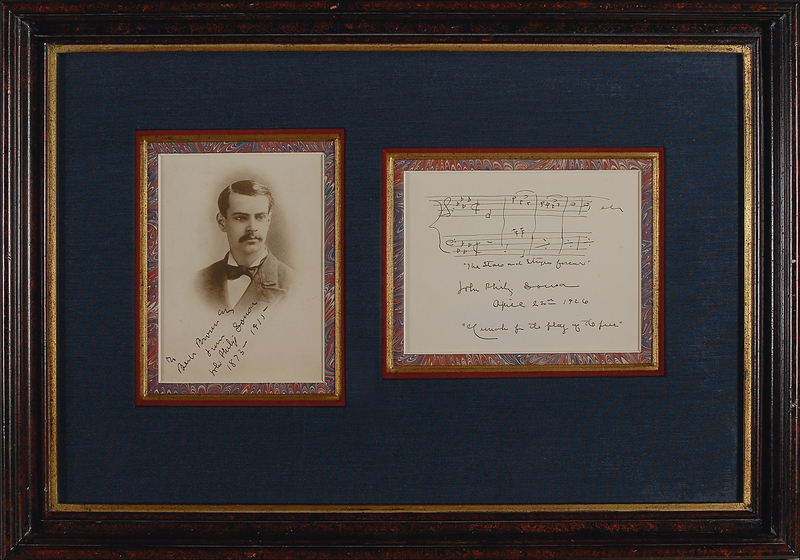 To
Bert Brown Esq
from
John Philip Sousa
1873 – 1915 –
etc
"The Stars and Stripes forever"
John Philip Sousa
April 22nd 1926
"Hurrah for the flag of the free"